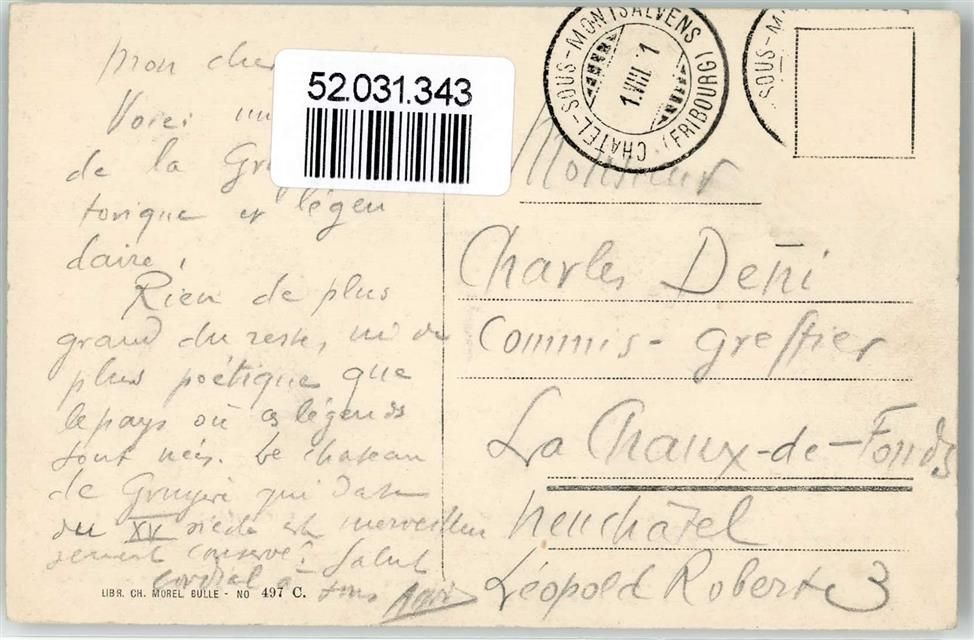 Mon cher
Voici un
de la Gr
torique et légen
daire,
Rien de plus
grand du reste, ni de
plus poétique que
le pays où ces légendes
sont nées. Le chateau
de Gruyère qui date
du XV siècle est merveilleu
sement conservé. Salut
cordial à tous
LIBR. CH. MOREL BULLE - NO 497 C.
52.031.343
CHATEL-SOUS-MONTSALVENS (FRIBOURG)
1.VIII. 1
SOUS-M
Monsieur
Charles Deni
Commis-greffier
La Chaux-de-Fonds
Neuchâtel
Léopold Robert 3